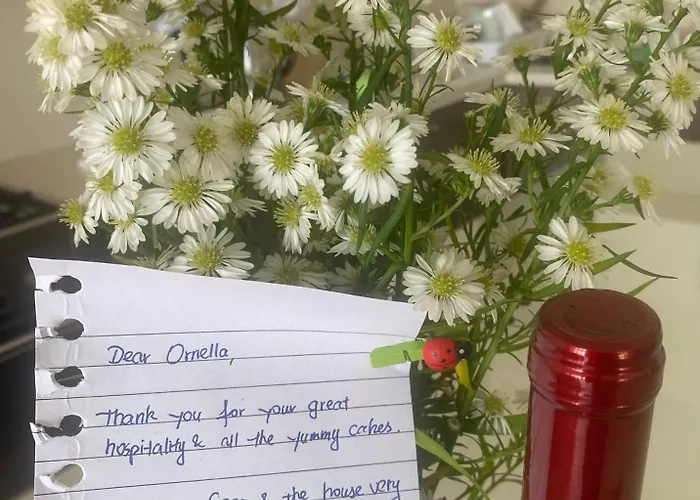 Dear Ornella,
Thank you for your great
hospitality & all the yummy cakes.
& the house very